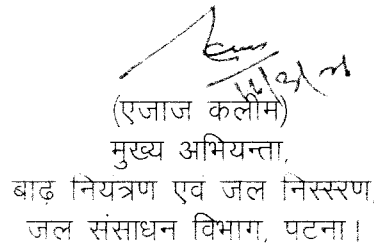 (एजाज कलीम)
मुख्य अभियन्ता,
बाढ़ नियत्रण एवं जल निस्सरण,
जल संसाधन विभाग, पटना।